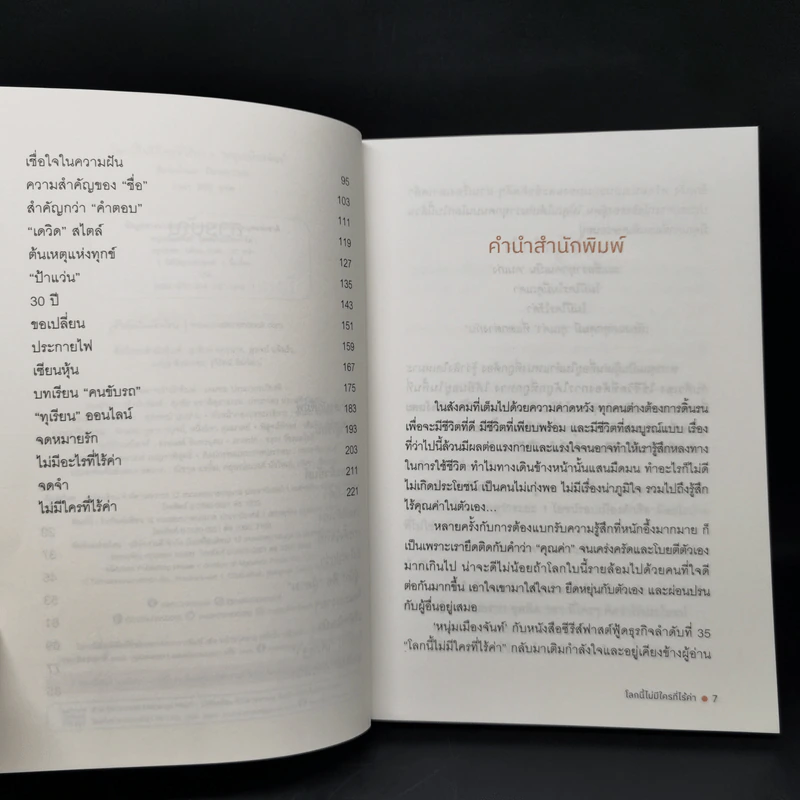 เชื่อใจในความฝัน 95
ความสำคัญของ "ชื่อ" 103
สำคัญกว่า "คำตอบ" 111
"เดวิด" สไตล์ 119
ต้นเหตุแห่งทุกข์ 127
"ป้าแว่น" 135
30 ปี 143
ขอเปลี่ยน 151
ประกายไฟ 159
เซียนหุ้น 167
บทเรียน "คนขับรถ" 175
"ทุเรียน" ออนไลน์ 183
จดหมายรัก 193
ไม่มีอะไรที่ไร้ค่า 203
จดจำ 211
ไม่มีใครที่ไร้ค่า 221
คำนำสำนักพิมพ์
ในสังคมที่เต็มไปด้วยความคาดหวัง ทุกคนต่างต้องการดิ้นรน
เพื่อจะมีชีวิตที่ดี มีชีวิตที่เพียบพร้อม และมีชีวิตที่สมบูรณ์แบบ เรื่อง
ที่ว่าไปนี้ล้วนมีผลต่อแรงกายและแรงใจจนอาจทำให้เรารู้สึกหลงทาง
ในการใช้ชีวิต ทำไมทางเดินข้างหน้านั้นแสนมืดมน ทำอะไรก็ไม่ดี
ไม่เกิดประโยชน์ เป็นคนไม่เก่งพอ ไม่มีเรื่องน่าภูมิใจ รวมไปถึงรู้สึก
ไร้คุณค่าในตัวเอง...
หลายครั้งกับการต้องแบกรับความรู้สึกที่หนักอึ้งมากมาย ก็
เป็นเพราะเรายึดติดกับคำว่า "คุณค่า" จนเคร่งครัดและโบยตีตัวเอง
มากเกินไป น่าจะดีไม่น้อยถ้าโลกใบนี้รายล้อมไปด้วยคนที่ใจดี
ต่อกันมากขึ้น เอาใจเขามาใส่ใจเรา ยืดหยุ่นกับตัวเอง และผ่อนปรน
กับผู้อื่นอยู่เสมอ
'หนุ่มเมืองจันท์' กับหนังสือซีรีส์ฟาสต์ฟู้ดธุรกิจลำดับที่ 35
"โลกนี้ไม่มีใครที่ไร้ค่า" กลับมาเติมกำลังใจและอยู่เคียงข้างผู้อ่าน
โลกนี้ไม่มีใครที่ไร้ค่า ● 7